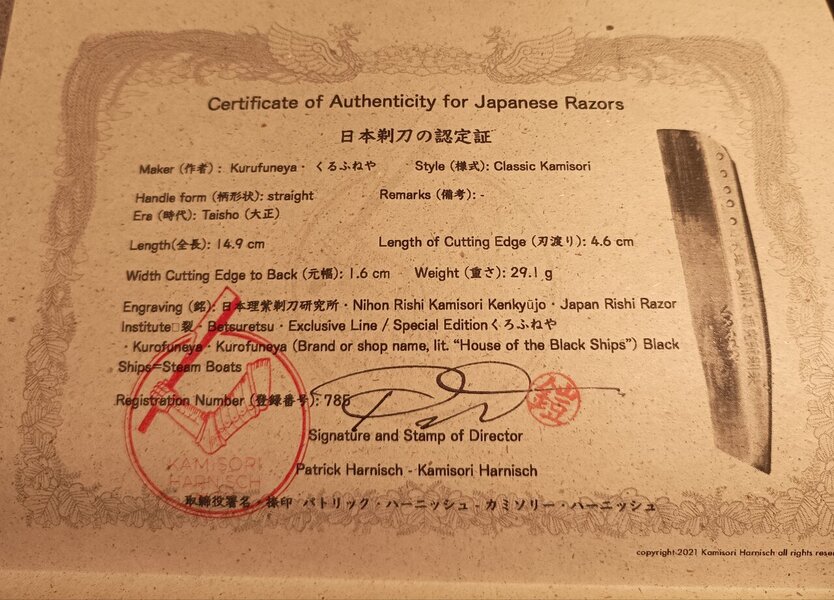 Certificate of Authenticity for Japanese Razors
日本剃刀の認定証
Maker (作者): Kurufuneya・くるふねや Style (様式): Classic Kamisori
Handle form (柄形状): straight Remarks (備考): -
Era (時代): Taisho (大正)
Length(全長): 14.9 cm Length of Cutting Edge (刃渡り): 4.6 cm
Width Cutting Edge to Back (元幅): 1.6 cm Weight (重さ): 29.1 g
Engraving (銘): 日本理紫剃刀研究所・Nihon Rishi Kamisori Kenkyūjo・Japan Rishi Razor
Institute□裂・Betsuretsu・Exclusive Line / Special Editionくろふねや
・Kurofuneya・Kurofuneya (Brand or shop name, lit. “House of the Black Ships”) Black
Ships=Steam Boats
Registration Number (登録番号): 785
Signature and Stamp of Director
Patrick Harnisch - Kamisori Harnisch
KAMISORI
HARNISCH
取締役署名・捺印 パトリック・ハーニッシュ - カミソリー・ハーニッシュ
copyright-2021 Kamisori Harnisch all rights rese